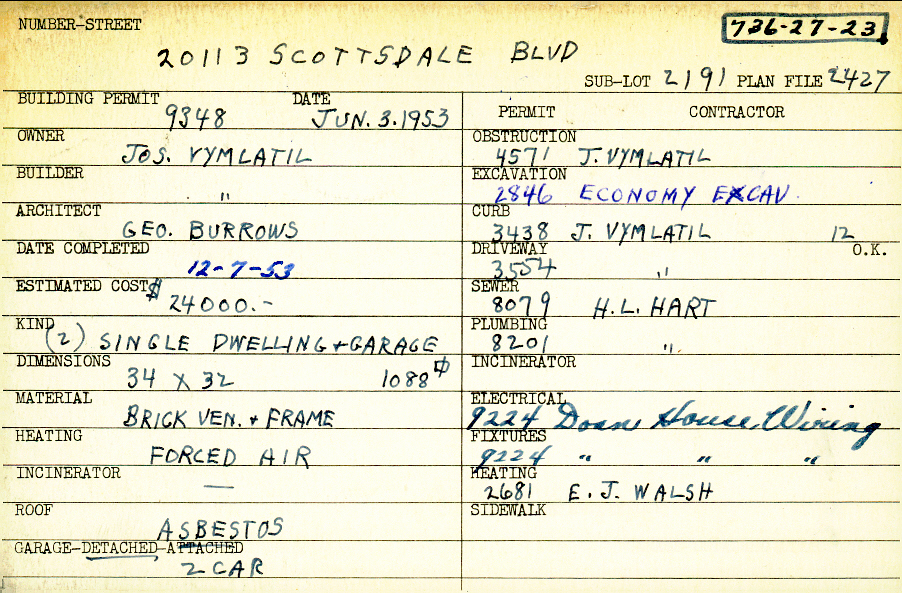 NUMBER-STREET 736-27-23
20113 SCOTTSDALE BLVD
SUB-LOT 2191 PLAN FILE 2427
BUILDING PERMIT DATE
9348 JUN. 3. 1953
OWNER
JOS. VYMLATIL
BUILDER
"
ARCHITECT
GEO. BURROWS
DATE COMPLETED
12-7-53
ESTIMATED COST $
24000.-
KIND
(2) SINGLE DWELLING + GARAGE
DIMENSIONS
34 X 32 1088
MATERIAL
BRICK VEN. + FRAME
HEATING
FORCED AIR
INCINERATOR
—
ROOF
ASBESTOS
GARAGE-DETACHED-ATTACHED
2 CAR
PERMIT CONTRACTOR
OBSTRUCTION
4571 J. VYMLATIL
EXCAVATION
2846 ECONOMY EXCAV
CURB
3438 J. VYMLATIL 12
DRIVEWAY O.K.
3554 "
SEWER
8079 H.L. HART
PLUMBING
8201 "
INCINERATOR
ELECTRICAL
9224 Doan House Wiring
FIXTURES
9224 " " "
HEATING
2681 E. J. WALSH
SIDEWALK